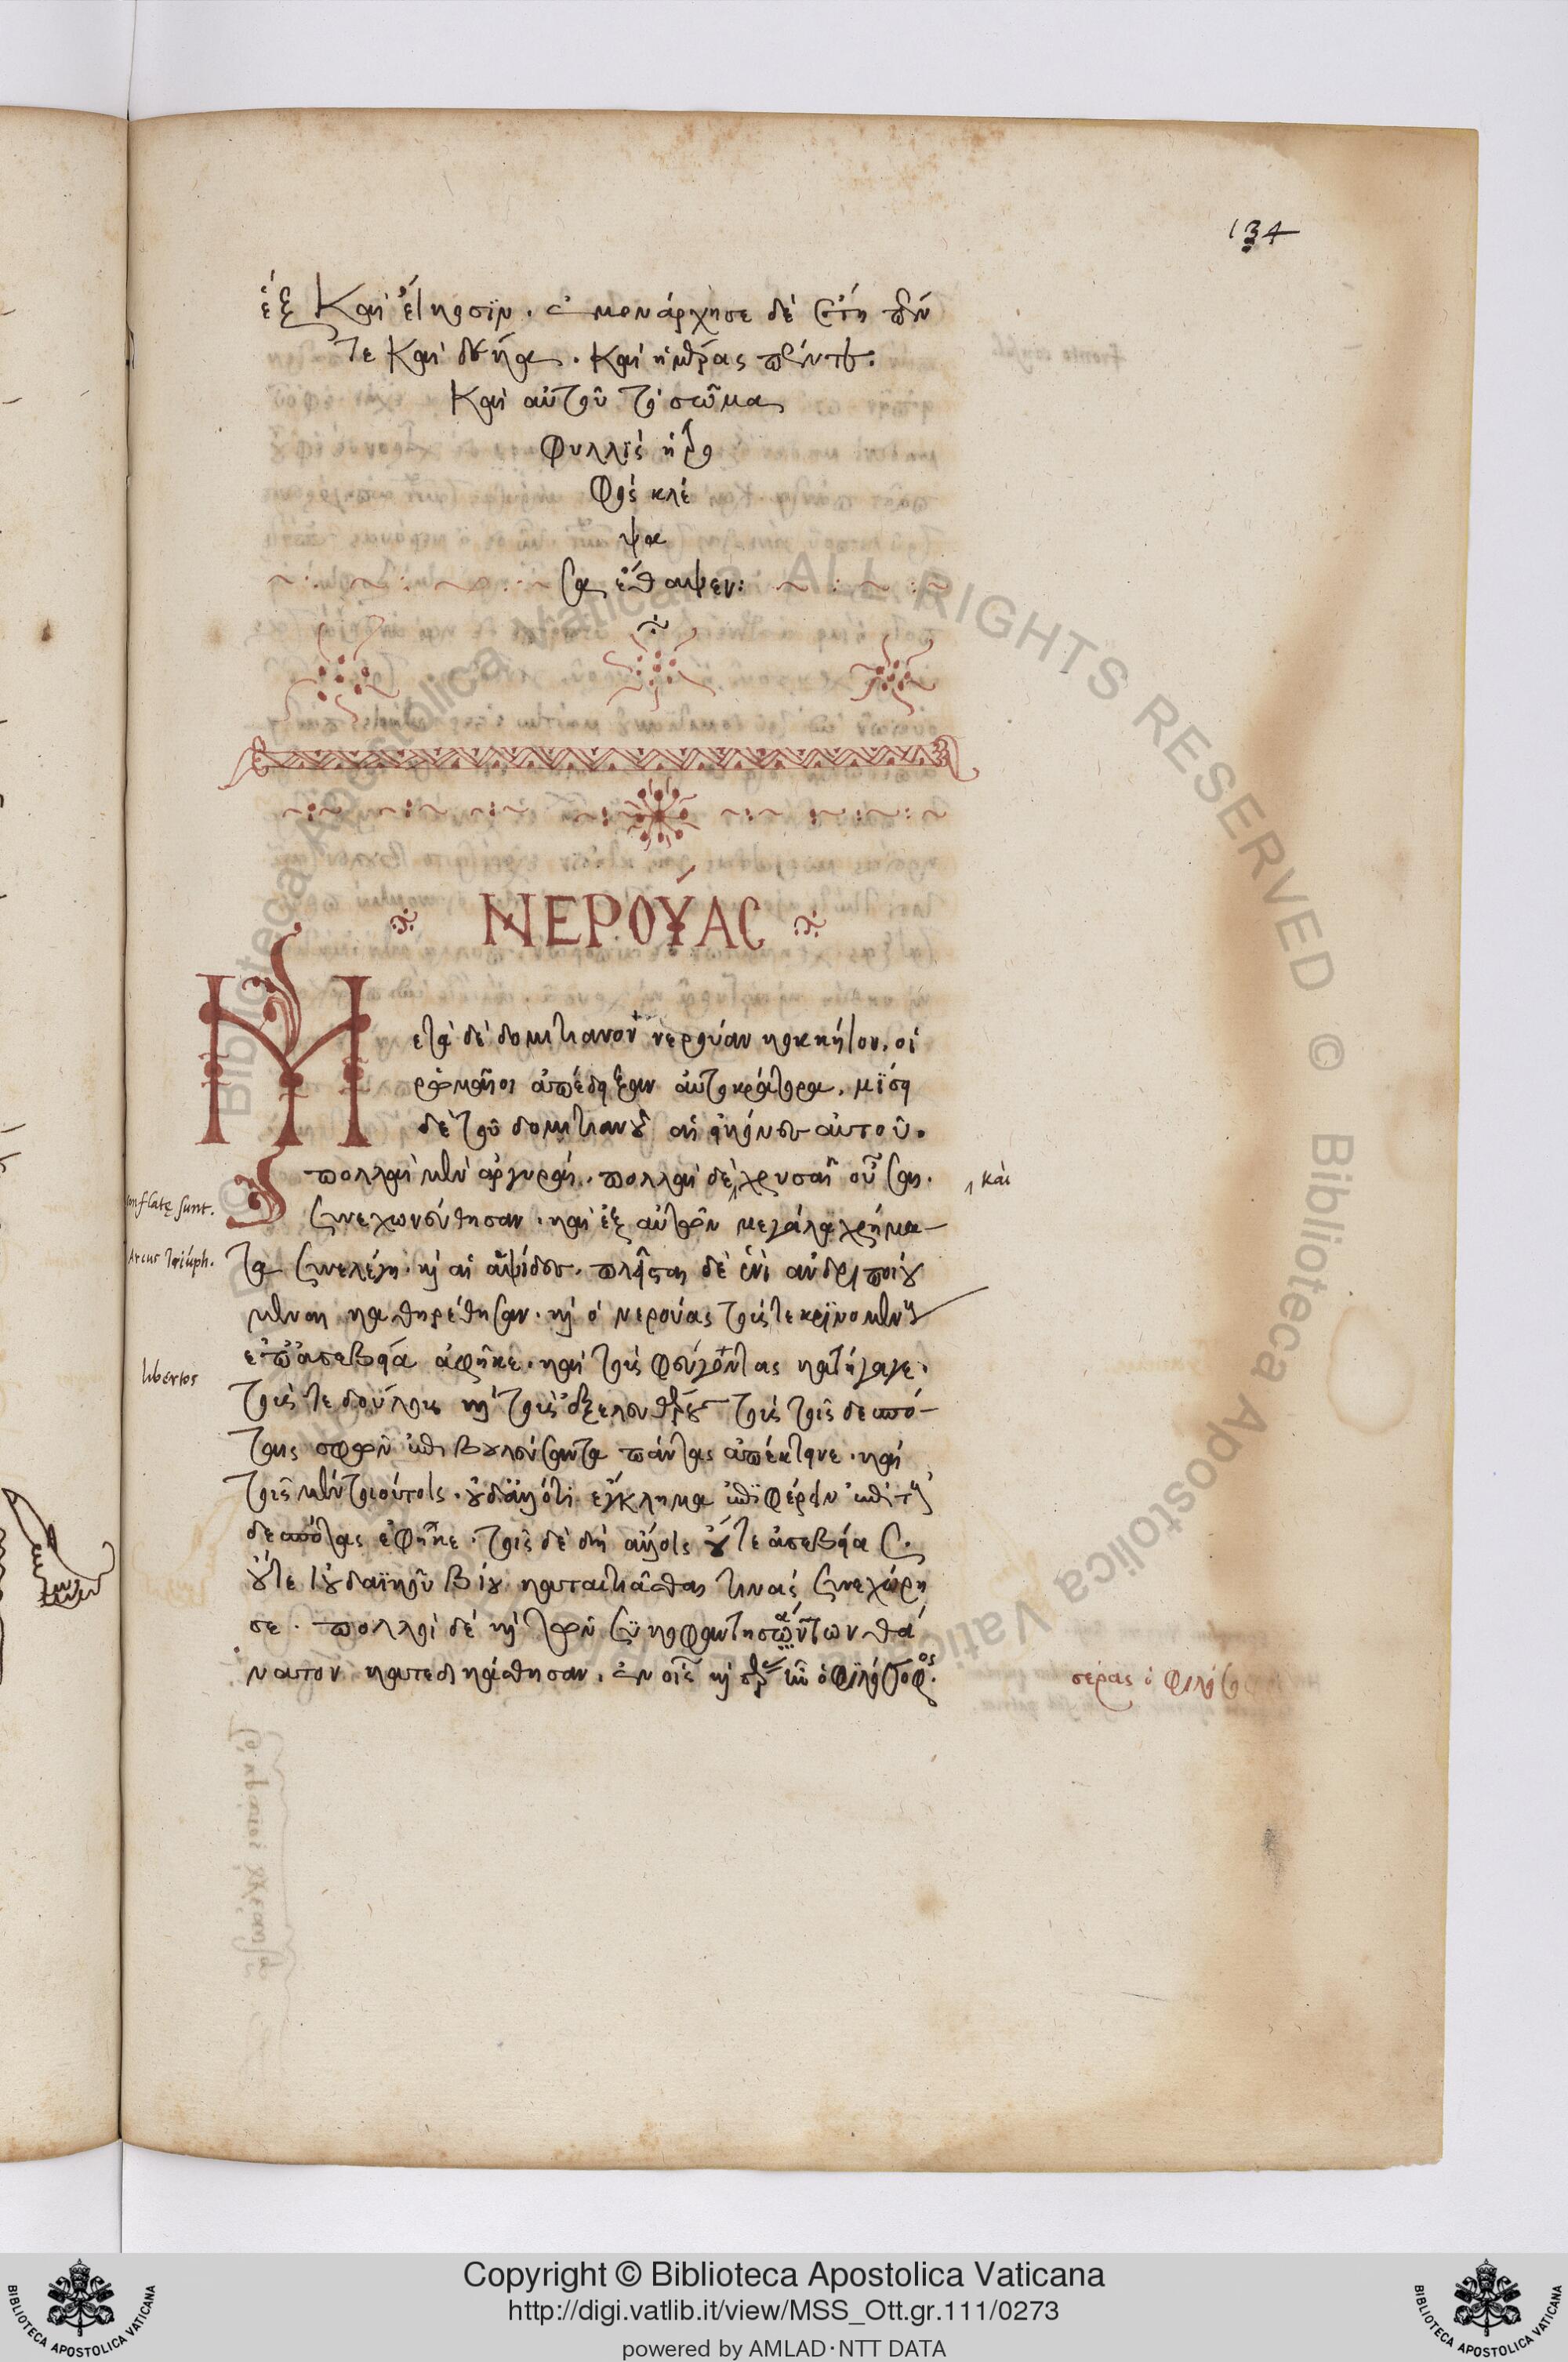 134
ἓξ καὶ εἴκοσιν. ἐμονάρχησε δὲ ἔτη πέν
τε καὶ δέκα. καὶ ἡμέρας πέντε.
καὶ αὐτοῦ τὸ σῶμα
φυλλὶς ἡ τρο
φὸς κλέ
ψα
σα ἔθαψεν:
ΝΕΡΟΎΑC
Μετὰ δὲ δομιτιανὸν νερούαν κοκκήϊον, οἱ
ρωμαῖοι ἀπέδειξαν αὐτοκράτορα. μίσει
δὲ τοῦ δομιτιανοῦ αἱ εἰκόνες αὐτοῦ.
πολλαὶ μὲν ἀργυραῖ. πολλαὶ δὲ χρυσαῖ οὖσαι.
καὶ
συνεχωνεύθησαν. καὶ ἐξ αὐτῶν μεγάλα χρήμα
conflatę sunt.
τα συνελέγη. καὶ αἱ ἁψίδες. πλεῖσται δὲ ἑνὶ ἀνδρὶ ποιού
Arcus triúph.
μεναι καθῃρέθησαν. καὶ ὁ νερούας τούς τε κρινομένους
ἐπ' ἀσεβείᾳ ἀφῆκε. καὶ τοὺς φεύγοντας κατήγαγε.
libertos
τούς τε δούλους καὶ τοὺς ἐξελευθέρους τοὺς τοῖς δεσπό
ταις σφῶν ἐπιβουλεύσαντας πάντας ἀπέκτεινε. καὶ
τοῖς μὲν τοιούτοις. οὐδ' ἄλλό τι ἔγκλημα ἐπιφέρειν ἐπὶ τοὺς
δεσπότας ἐφῆκε. τοῖς δὲ δὴ ἄλλοις οὔτε ἀσεβείας.
οὔτε ἰουδαϊκοῦ βίου καταιτιᾶσθαι τινὰς συνεχώρη
σε. πολλοὶ δὲ καὶ τῶν συκοφαντησάντων θά
νατον κατεδικάσθησαν. ἐν οἷς καὶ σέρας ἦν ὁ φιλόσοφος.
σέρας ὁ φιλόσοφος
Copyright © Biblioteca Apostolica Vaticana
http://digi.vatlib.it/view/MSS_Ott.gr.111/0273
powered by AMLAD·NTT DATA
BIBLIOTECA APOSTOLICA VATICANA
BIBLIOTECA APOSTOLICA VATICANA